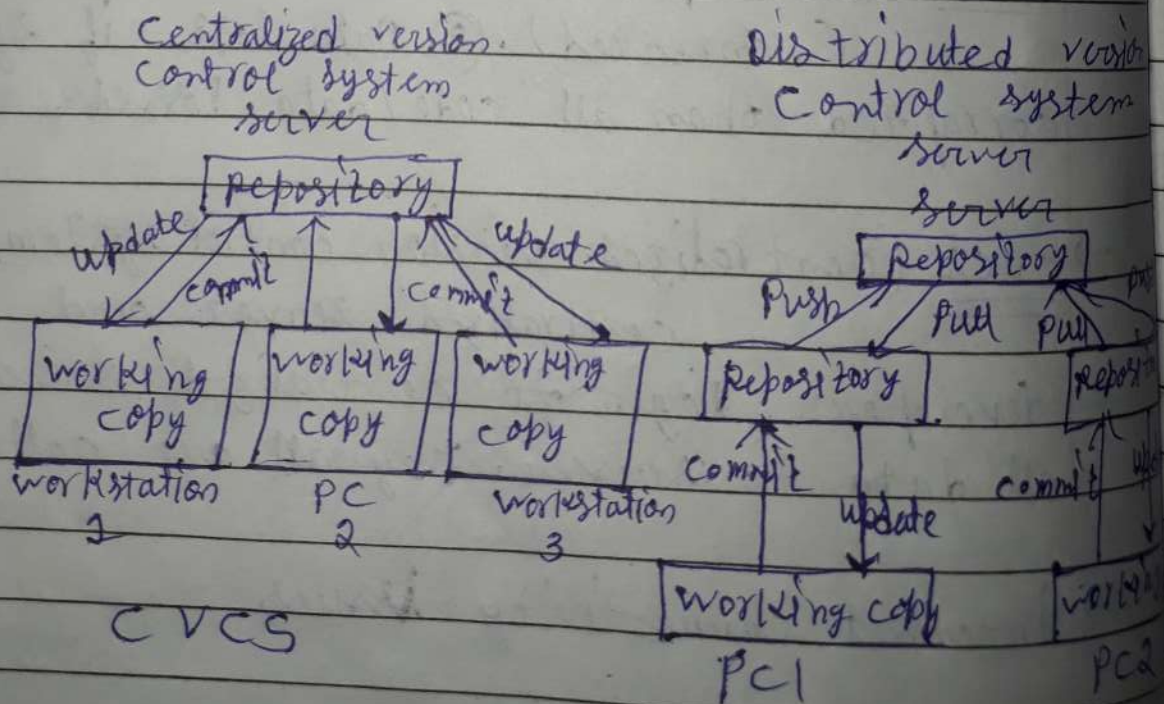 Centralized version.
Control system
server
Repository
update
commit
commit
update
working
copy
workstation
1
working
copy
PC
2
working
copy
workstation
3
CVCS
Distributed
Control system
server
server
Repository
Push
Pull
Pull
Repository
commit
update
commit
working copy
PC1
PC2